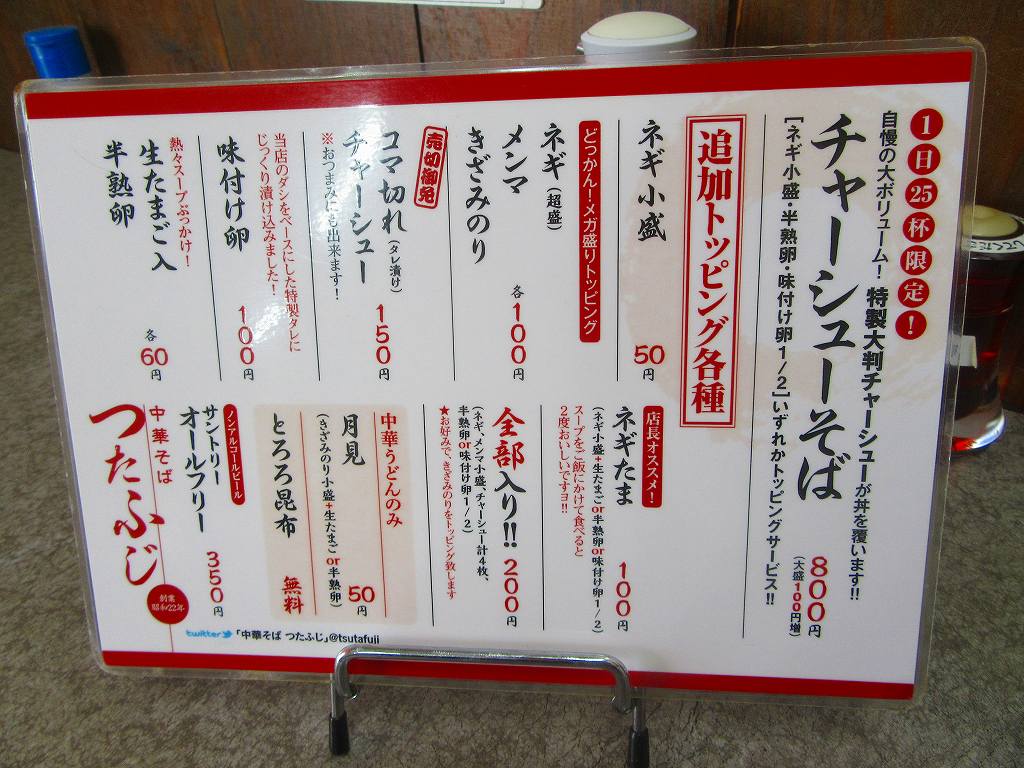 1日25杯限定!
自慢の大ボリューム! 特製大判チャーシューが丼を覆います!!
チャーシューそば 800円
(大盛100円増)
[ネギ小盛・半熟卵・味付け卵1/2]いずれかトッピングサービス!!
追加トッピング各種
ネギ小盛 50円
どっかん!メガ盛りトッピング
ネギ(超盛)
メンマ
各100円
きざみのり
売切御免
コマ切れ(タレ漬け)
チャーシュー 150円
※おつまみにも出来ます!
当店のダシをベースにした特製タレに
じっくり漬け込みました!
味付け卵 100円
熱々スープぶっかけ!
生たまご入
半熟卵
各60円
店長オススメ!
ネギたま 100円
(ネギ小盛+生たまごor半熟卵or味付け卵1/2)
スープをご飯にかけて食べると
2度おいしいですヨ!!
全部入り!! 200円
(ネギ、メンマ小盛、チャーシュー計4枚、
半熟卵or味付け卵1/2)
★お好みで、きざみのりをトッピング致します
中華うどんのみ
月見 50円
(きざみのり小盛+生たまご or 半熟卵)
とろろ昆布 無料
ノンアルコールビール
サントリー
オールフリー 350円
中華そば
つたふじ
創業
昭和22年
twitter「中華そば つたふじ」@tsutafuji